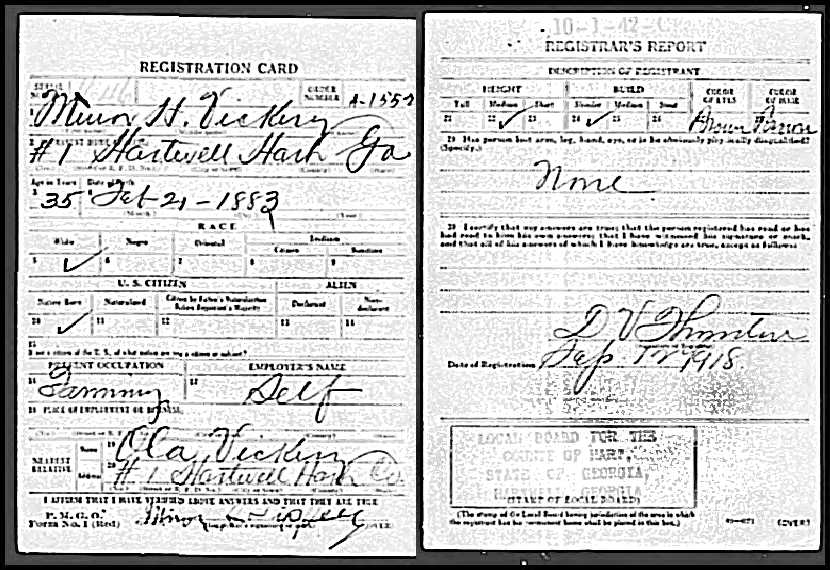 REGISTRATION CARD
ORDER NUMBER A-1557
Minor H. Vickery
#1 Hartwell Hart Ga
Age in Years Date of Birth
35 Feb-21-1883
RACE
White Negro Oriental Indian
Citizen
5 ✓ 6 7 8 9
U. S. CITIZEN ALIEN
Native Born Naturalized Declarant Non-declarant
10 ✓ 11 12 13 14
15
If not a citizen of the U. S., of what nation are you a citizen or subject?
PRESENT OCCUPATION EMPLOYER'S NAME
16 Farming 17 Self
18 PLACE OF EMPLOYMENT OR BUSINESS
NEAREST RELATIVE
Name 19 Ola Vickery
Address 20 #1 Hartwell Hart Ga
I AFFIRM THAT I HAVE VERIFIED ABOVE ANSWERS AND THAT THEY ARE TRUE
P. M. G. O.
Form No. 1 (Red) Minor H Vickery (OVER)
REGISTRAR'S REPORT
DESCRIPTION OF REGISTRANT
HEIGHT BUILD COLOR OF EYES COLOR OF HAIR
Tall Medium Short Slender Medium Stout
21 22 ✓ 23 24 ✓ 25 26 Brown Brown
29 Has person lost arm, leg, hand, eye, or is he obviously physically disqualified?
(Specify.)
None
30 I certify that my answers are true; that the person registered has read or has
had read to him his own answers; that I have witnessed his signature or mark,
and that all of his answers of which I have knowledge are true, except as follows:
D V
Date of Registration Sep 12 1918
LOCAL BOARD FOR THE
COUNTY OF HART,
STATE OF GEORGIA,
(STAMP OF LOCAL BOARD)
(The stamp of the Local Board having jurisdiction of the area in which
the registrant has his permanent home shall be placed in this box.)
(OVER)